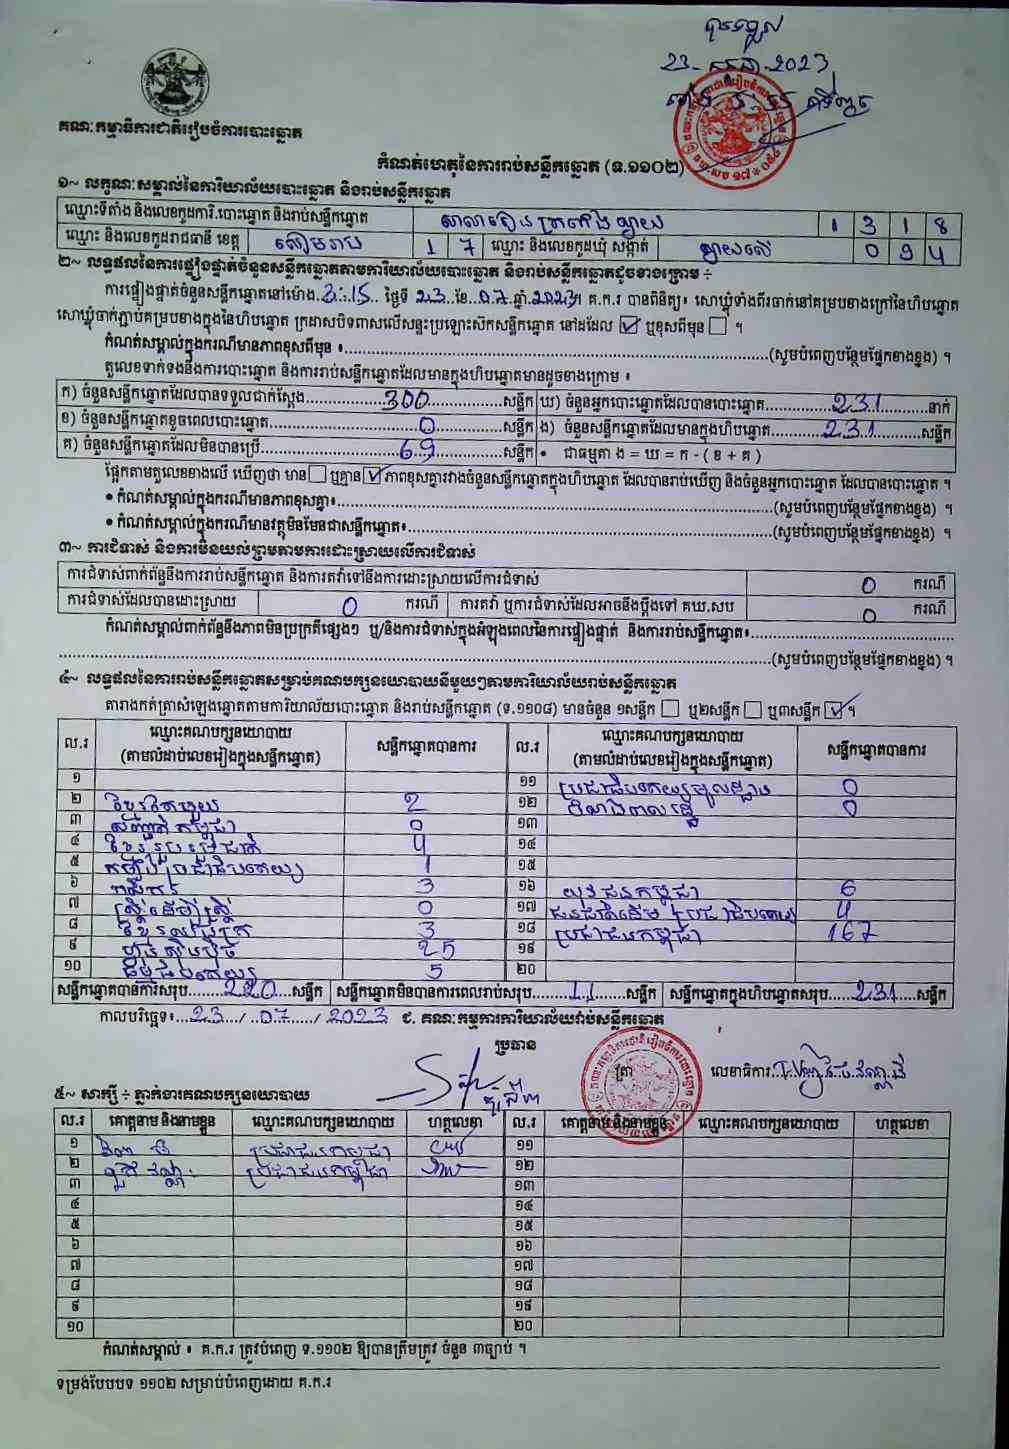 23 - កក្កដា - 2023
គណៈកម្មាធិការជាតិរៀបចំការបោះឆ្នោត
កំណត់ហេតុនៃការរាប់សន្លឹកឆ្នោត (ទ.១១០២)
១~ លក្ខណៈសម្គាល់នៃការិយាល័យបោះឆ្នោត និងរាប់សន្លឹកឆ្នោត
ឈ្មោះទីតាំង និងលេខកូដការិ.បោះឆ្នោត និងរាប់សន្លឹកឆ្នោត 1 3 1 8
ឈ្មោះ និងលេខកូដរាជធានី ខេត្ត សៀមរាប 1 7 ឈ្មោះ និងលេខកូដឃុំ សង្កាត់ ឆ្វាយលើ
២~ លទ្ធផលនៃការផ្ទៀងផ្ទាត់ចំនួនសន្លឹកឆ្នោតតាមការិយាល័យបោះឆ្នោត និងរាប់សន្លឹកឆ្នោតដូចខាងក្រោម ÷
ការផ្ទៀងផ្ទាត់ចំនួនសន្លឹកឆ្នោតនៅម៉ោង..3:15.. ថ្ងៃទី 23 ..ខែ..07.ឆ្នាំ.2023។ គ.ក.រ បានពិនិត្យ៖ សោឃ្លុំទាំងពីរចាក់នៅគម្របខាងក្រៅនៃហិបឆ្នោត
សោឃ្លុំចាក់ភ្ជាប់គម្របខាងក្នុងនៃហិបឆ្នោត ក្រដាសបិទពាសលើសន្ទះប្រឡោះស៊កសន្លឹកឆ្នោត នៅដដែល ☑ ឬខុសពីមុន ☐ ។
កំណត់សម្គាល់ក្នុងករណីមានភាពខុសពីមុន ៖..........(សូមបំពេញបន្ថែមផ្នែកខាងខ្នង) ។
តួលេខទាក់ទងនឹងការបោះឆ្នោត និងការរាប់សន្លឹកឆ្នោតដែលមានក្នុងហិបឆ្នោតមានដូចខាងក្រោម ៖
ក) ចំនួនសន្លឹកឆ្នោតដែលបានទទួលជាក់ស្តែង..........300..........សន្លឹក ឃ) ចំនួនអ្នកបោះឆ្នោតដែលបានបោះឆ្នោត..........231..........នាក់
ខ) ចំនួនសន្លឹកឆ្នោតខូចពេលបោះឆ្នោត..........0..........សន្លឹក ង) ចំនួនសន្លឹកឆ្នោតដែលមានក្នុងហិបឆ្នោត..........231..........សន្លឹក
គ) ចំនួនសន្លឹកឆ្នោតដែលមិនបានប្រើ..........69..........សន្លឹក • ជាធម្មតា ង = ឃ = ក - ( ខ + គ )
ផ្អែកតាមតួលេខខាងលើ ឃើញថា មាន ☐ ឬគ្មាន ☑ ភាពខុសគ្នារវាងចំនួនសន្លឹកឆ្នោតក្នុងហិបឆ្នោត ដែលបានរាប់ឃើញ និងចំនួនអ្នកបោះឆ្នោត ដែលបានបោះឆ្នោត ។
• កំណត់សម្គាល់ក្នុងករណីមានភាពខុសគ្នា៖..........(សូមបំពេញបន្ថែមផ្នែកខាងខ្នង) ។
• កំណត់សម្គាល់ក្នុងករណីមានវត្ថុមិនមែនជាសន្លឹកឆ្នោត៖..........(សូមបំពេញបន្ថែមផ្នែកខាងខ្នង) ។
៣~ ការជំទាស់ និងការមិនយល់ព្រមតាមការដោះស្រាយលើការជំទាស់
ការជំទាស់ពាក់ព័ន្ធនឹងការរាប់សន្លឹកឆ្នោត និងការតវ៉ាទៅនឹងការដោះស្រាយលើការជំទាស់ 0 ករណី
ការជំទាស់ដែលបានដោះស្រាយ 0 ករណី ការតវ៉ា ឬការជំទាស់ដែលអាចនឹងប្តឹងទៅ គឃ.សប 0 ករណី
កំណត់សម្គាល់ពាក់ព័ន្ធនឹងភាពមិនប្រក្រតីផ្សេងៗ ឬ/និងការជំទាស់ក្នុងអំឡុងពេលនៃការផ្ទៀងផ្ទាត់ និងការរាប់សន្លឹកឆ្នោត៖..........
..........(សូមបំពេញបន្ថែមផ្នែកខាងខ្នង) ។
៤~ លទ្ធផលនៃការរាប់សន្លឹកឆ្នោតសម្រាប់គណបក្សនយោបាយនីមួយៗតាមការិយាល័យរាប់សន្លឹកឆ្នោត
តារាងកត់ត្រាសំឡេងឆ្នោតតាមការិយាល័យបោះឆ្នោត និងរាប់សន្លឹកឆ្នោត (ទ.១១០៨) មានចំនួន ១សន្លឹក ☐ ឬ២សន្លឹក ☐ ឬ៣សន្លឹក ☑ ។
ល.រ ឈ្មោះគណបក្សនយោបាយ (តាមលំដាប់លេខរៀងក្នុងសន្លឹកឆ្នោត) សន្លឹកឆ្នោតបានការ ល.រ ឈ្មោះគណបក្សនយោបាយ (តាមលំដាប់លេខរៀងក្នុងសន្លឹកឆ្នោត) សន្លឹកឆ្នោតបានការ
១ ១១ 0
២ ខ្មែរតែមួយ 2 ១២ 0
៣ កម្ពុជា 0 ១៣
៤ ខ្មែររួបរួមជាតិ 4 ១៤
៥ ប្រជាធិបតេយ្យ 1 ១៥
៦ កសិករ 3 ១៦ យុវជនកម្ពុជា 6
៧ ស្ត្រីដើម្បីស្ត្រី 0 ១៧ ជនជាតិដើម ប្រជាធិបតេយ្យ 4
៨ ខ្មែរ 3 ១៨ ប្រជាជនកម្ពុជា 167
៩ ហ្វ៊ុនស៊ិនប៉ិច 25 ១៩
១០ 5 ២០
សន្លឹកឆ្នោតបានការសរុប........220....សន្លឹក សន្លឹកឆ្នោតមិនបានការពេលរាប់សរុប........11......សន្លឹក សន្លឹកឆ្នោតក្នុងហិបឆ្នោតសរុប....231....សន្លឹក
កាលបរិច្ឆេទ៖...23.../..07..../ 2023 ជ. គណៈកម្មការការិយាល័យរាប់សន្លឹកឆ្នោត
ប្រធាន ត្រា លេខាធិការ
៥~ សាក្សី ÷ ភ្នាក់ងារគណបក្សនយោបាយ
ល.រ គោត្តនាម និងនាមខ្លួន ឈ្មោះគណបក្សនយោបាយ ហត្ថលេខា ល.រ គោត្តនាម និងនាមខ្លួន ឈ្មោះគណបក្សនយោបាយ ហត្ថលេខា
១ ប្រជាជនកម្ពុជា ១១
២ ប្រជាជនកម្ពុជា ១២
៣ ១៣
៤ ១៤
៥ ១៥
៦ ១៦
៧ ១៧
៨ ១៨
៩ ១៩
១០ ២០
កំណត់សម្គាល់ ៖ គ.ក.រ ត្រូវបំពេញ ទ.១១០២ ឱ្យបានត្រឹមត្រូវ ចំនួន ៣ច្បាប់ ។
ទម្រង់បែបបទ ១១០២ សម្រាប់បំពេញដោយ គ.ក.រ